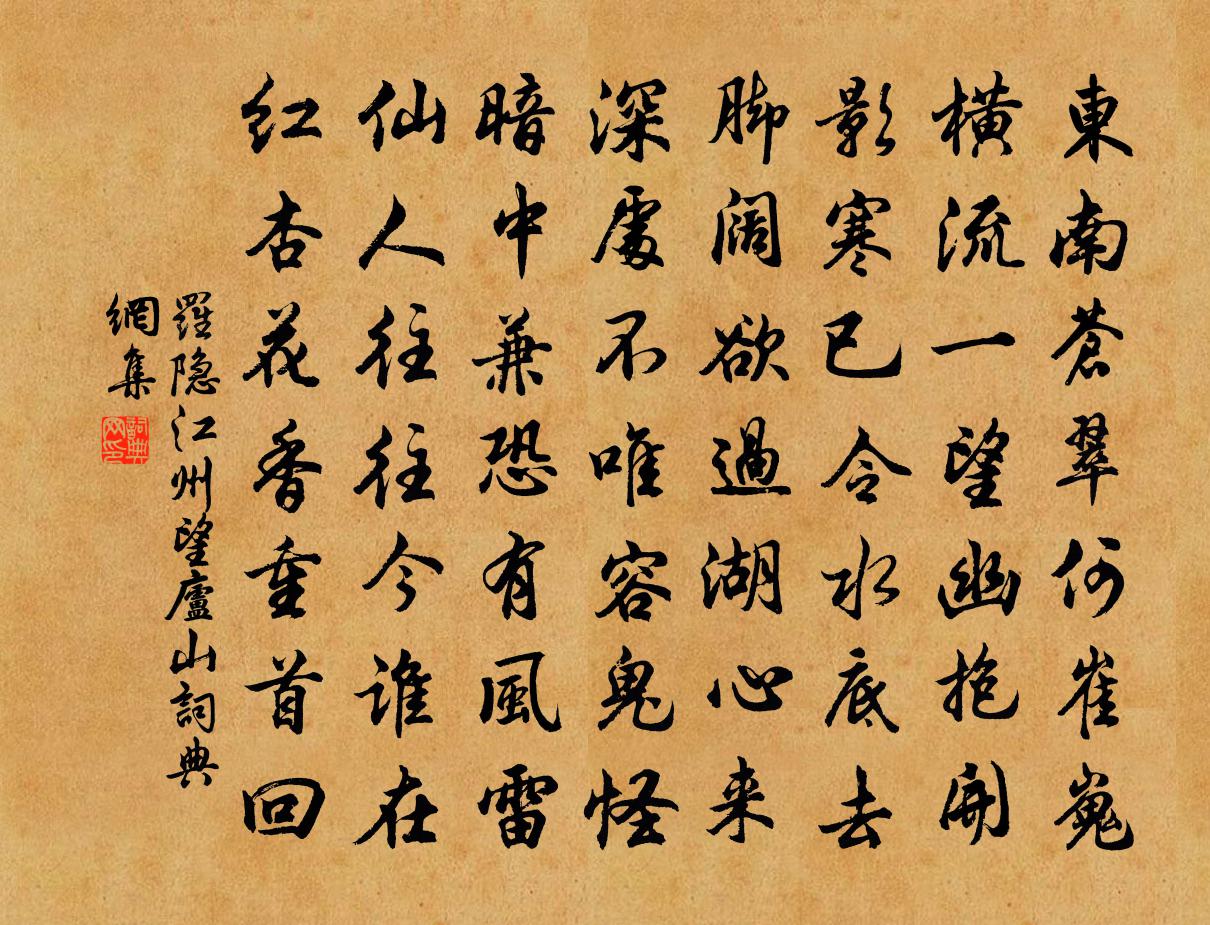 東南蒼翠何崔嵬
橫流一望幽抱開
影寒已令水底去
脚闊欲過湖心来
深處不唯容鬼怪
暗中兼恐有風雷
仙人往往今誰在
红杏花香重首回
羅隐江州望廬山詞典
網集
詞典
网印